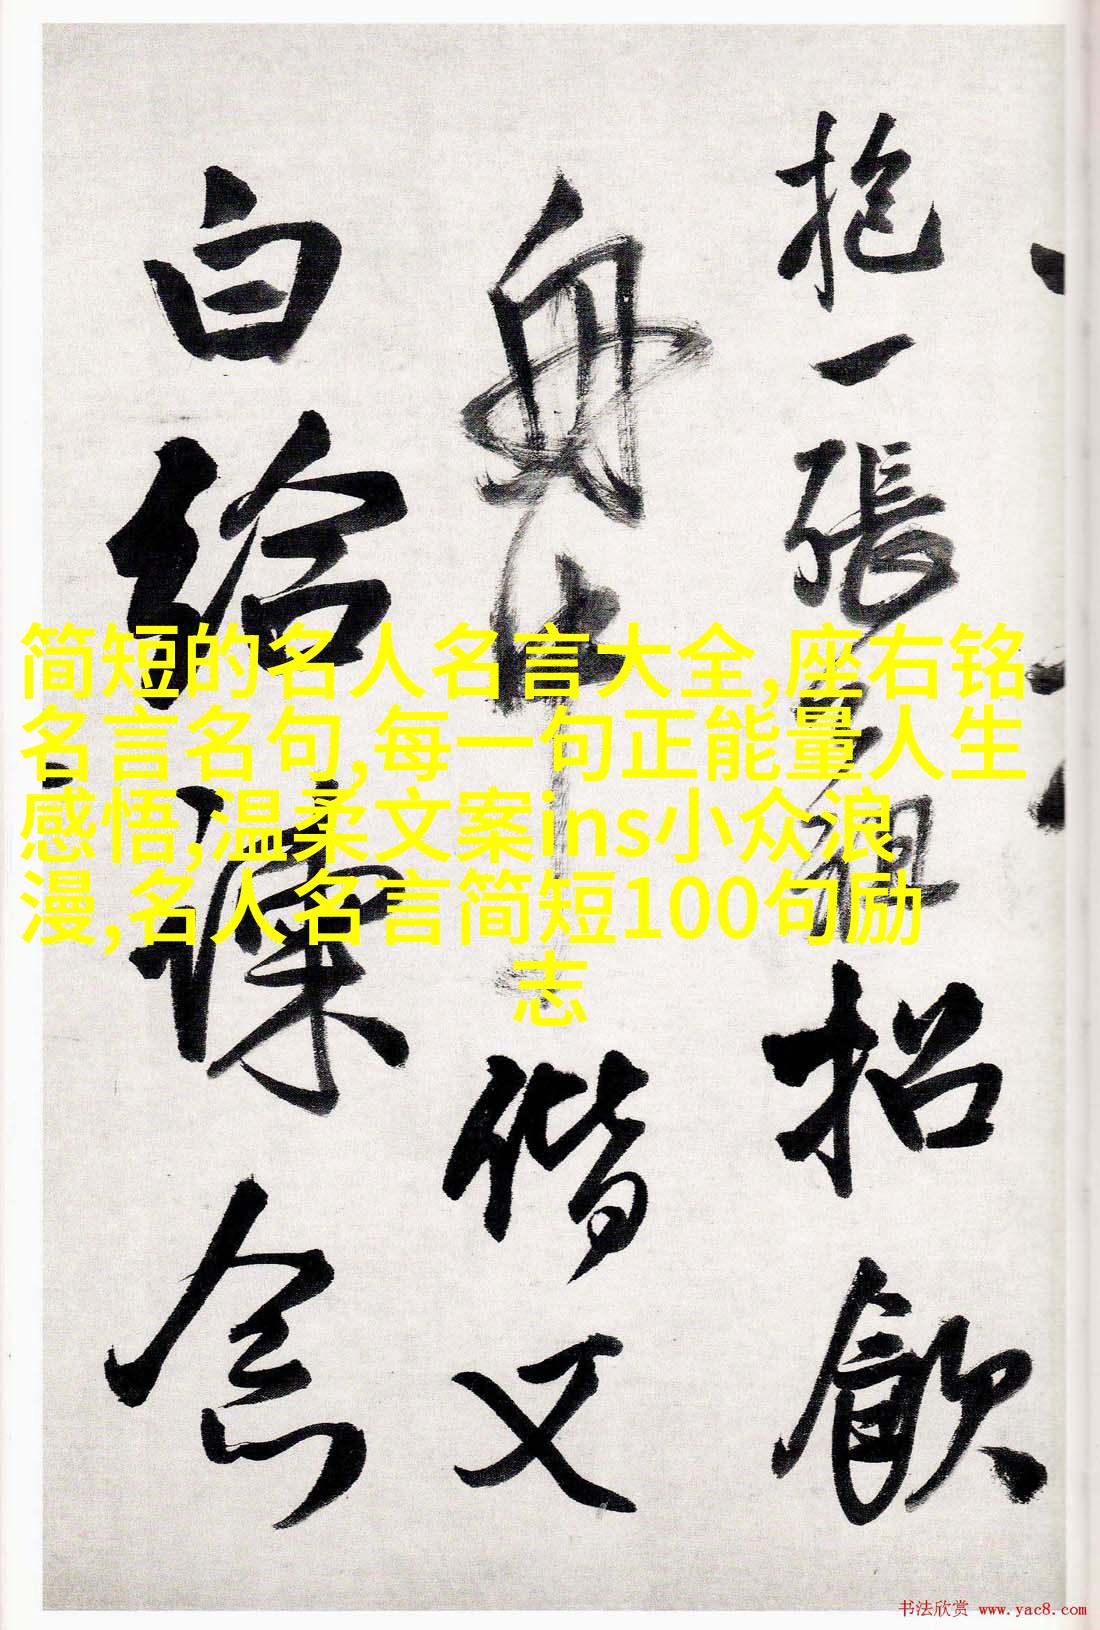 抱一張
招飲
舟中
偕又
白給諫
念
简短的名人名言大全,座右铭
名言名句,每一句正能量人生
感悟,温柔文案ins小众浪
漫,名人名言简短100句励
志
书法欣赏 www.yac8.com